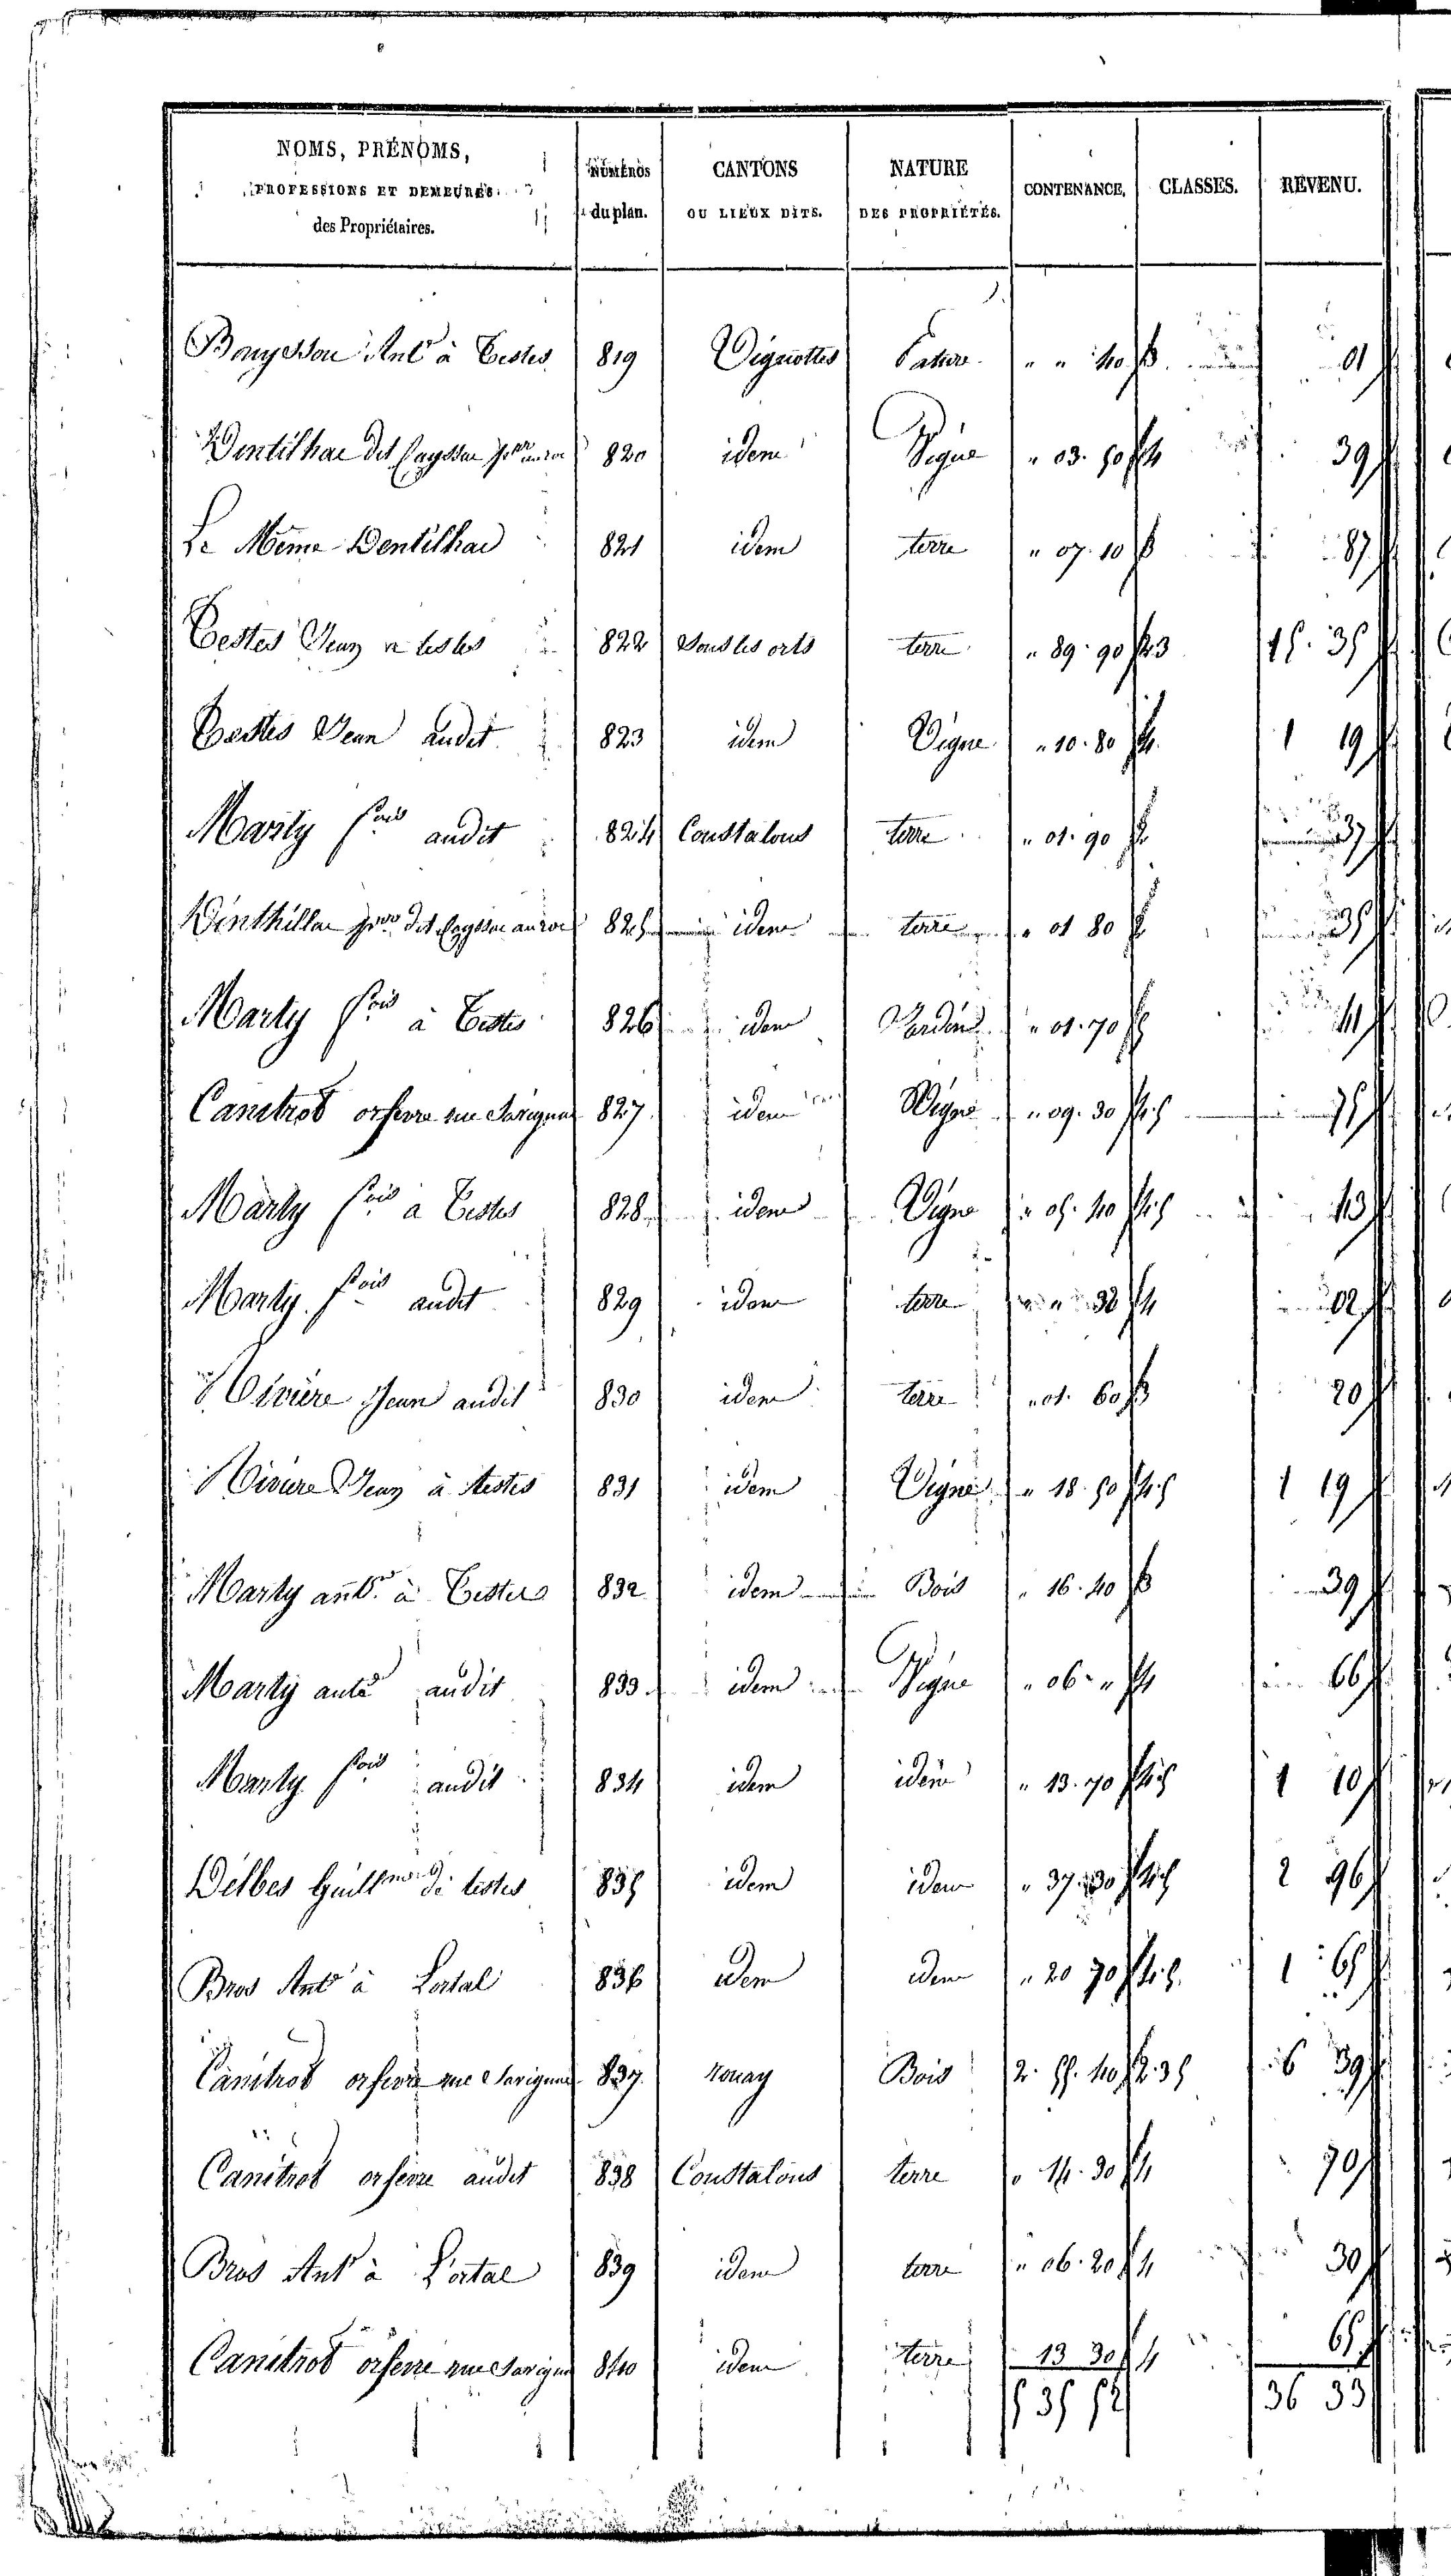 NOMS, PRÉNOMS, PROFESSIONS ET DEMEURES des Propriétaires. NUMÉROS du plan. CANTONS OU LIEUX DITS. NATURE DES PROPRIÉTÉS. CONTENANCE. CLASSES. REVENU.
à Testes 819 Vignottes Pature " " 40 3 01
dit 820 idem Vigne " 03. 50 4 39
Le Même 821 idem terre " 07. 10 3 87
Testes Jean 822 Sous les orts terre " 89. 90 2.3 15. 35
Testes Jean audit 823 idem Vigne " 10. 80 4 1 19
Marty fois audit 824 Constalous terre " 01. 90 2 37
dit 825 idem terre " 01 80 2 35
Marty fois à Testes 826 idem Jardin " 01. 70 41
Canitrot orfevre rue 827 idem Vigne " 09. 30 4.5 75
Marty fois à Testes 828 idem Vigne " 05. 40 4.5 43
Marty fois audit 829 idem terre " " 32 4 02
Rivière Jean audit 830 idem terre " 01. 60 3 20
Rivière Jean à Testes 831 idem Vigne " 18. 50 4.5 1 19
Marty antne à Testes 832 idem Bois " 16. 40 3 39
Marty antne audit 833 idem Vigne " 06 " 4 66
Marty fois audit 834 idem idem " 13. 70 4.5 1 10
Delbes de testes 835 idem idem " 37. 30 4.5 2 96
Bros Antne à 836 idem idem " 20 70 4.5 1 65
Canitrot orfevre rue 837 Bois 2. 55. 40 2.3 5 6 39
Canitrot orfevre audit 838 Constalous terre " 14. 30 4 70
Bros Antne à 839 idem terre " 06. 20 4 30
Canitrot orfevre rue 840 idem terre 13 30 4 65
5 35 52 36 33